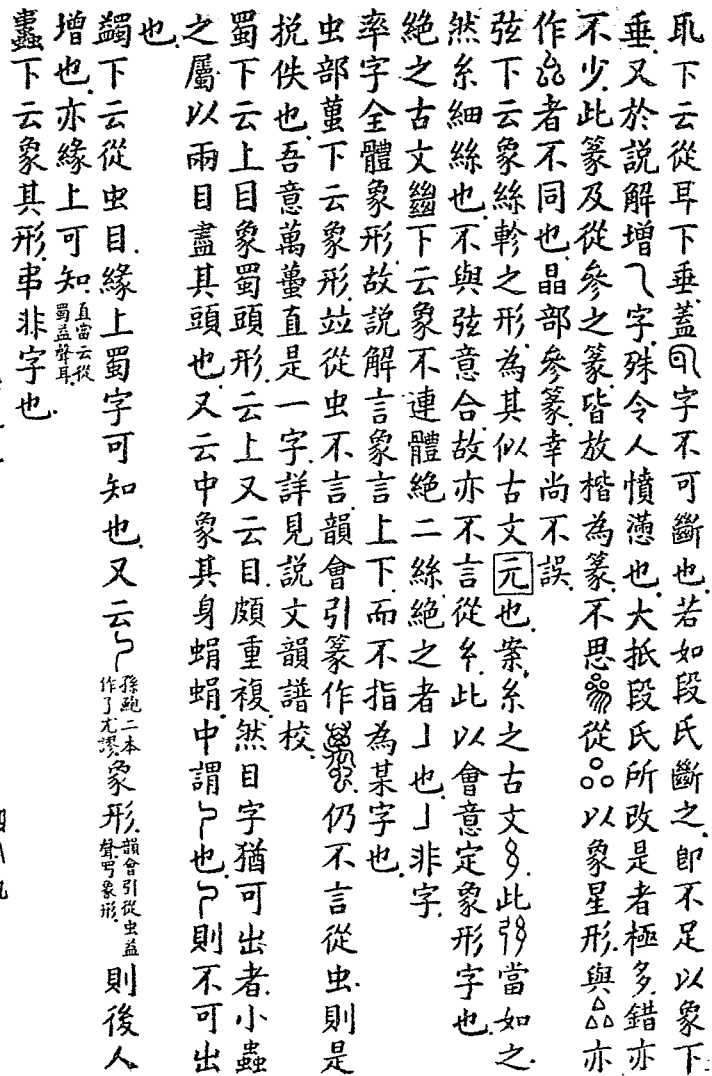 耴下云從耳下垂蓋字不可斷也若如段氏斷之即不足以象下
垂又於說解增乁字殊令人憤懣也大抵段氏所改是者極多錯亦
不少此篆及從參之篆皆放楷為篆不思從以象星形與亦
作者不同也晶部參篆幸尚不誤
弦下云象絲軫之形為其似古文元也案糸之古文此當如之
然糸細絲也不與弦意合故亦不言從此以會意定象形字也
絕之古文下云象不連體絕二絲絕之者也非字
率字全體象形故說解言象言上下而不指為某字也
虫部蠆下云象形竝從虫不言韻會引篆作仍不言從虫則是
捝佚也吾意萬蠆直是一字詳見說文韻譜校
蜀下云上目象蜀頭形云上又云目頗重複然目字猶可出者小蟲
之屬以兩目盡其頭也又云中象其身蜎蜎中謂也則不可出
也
蠲下云從虫目緣上蜀字可知也又云孫鮑二本作了尤謬象形韻會引從虫益聲象形則後人
增也亦緣上可知直當云從蜀益聲耳
下云象其形非字也